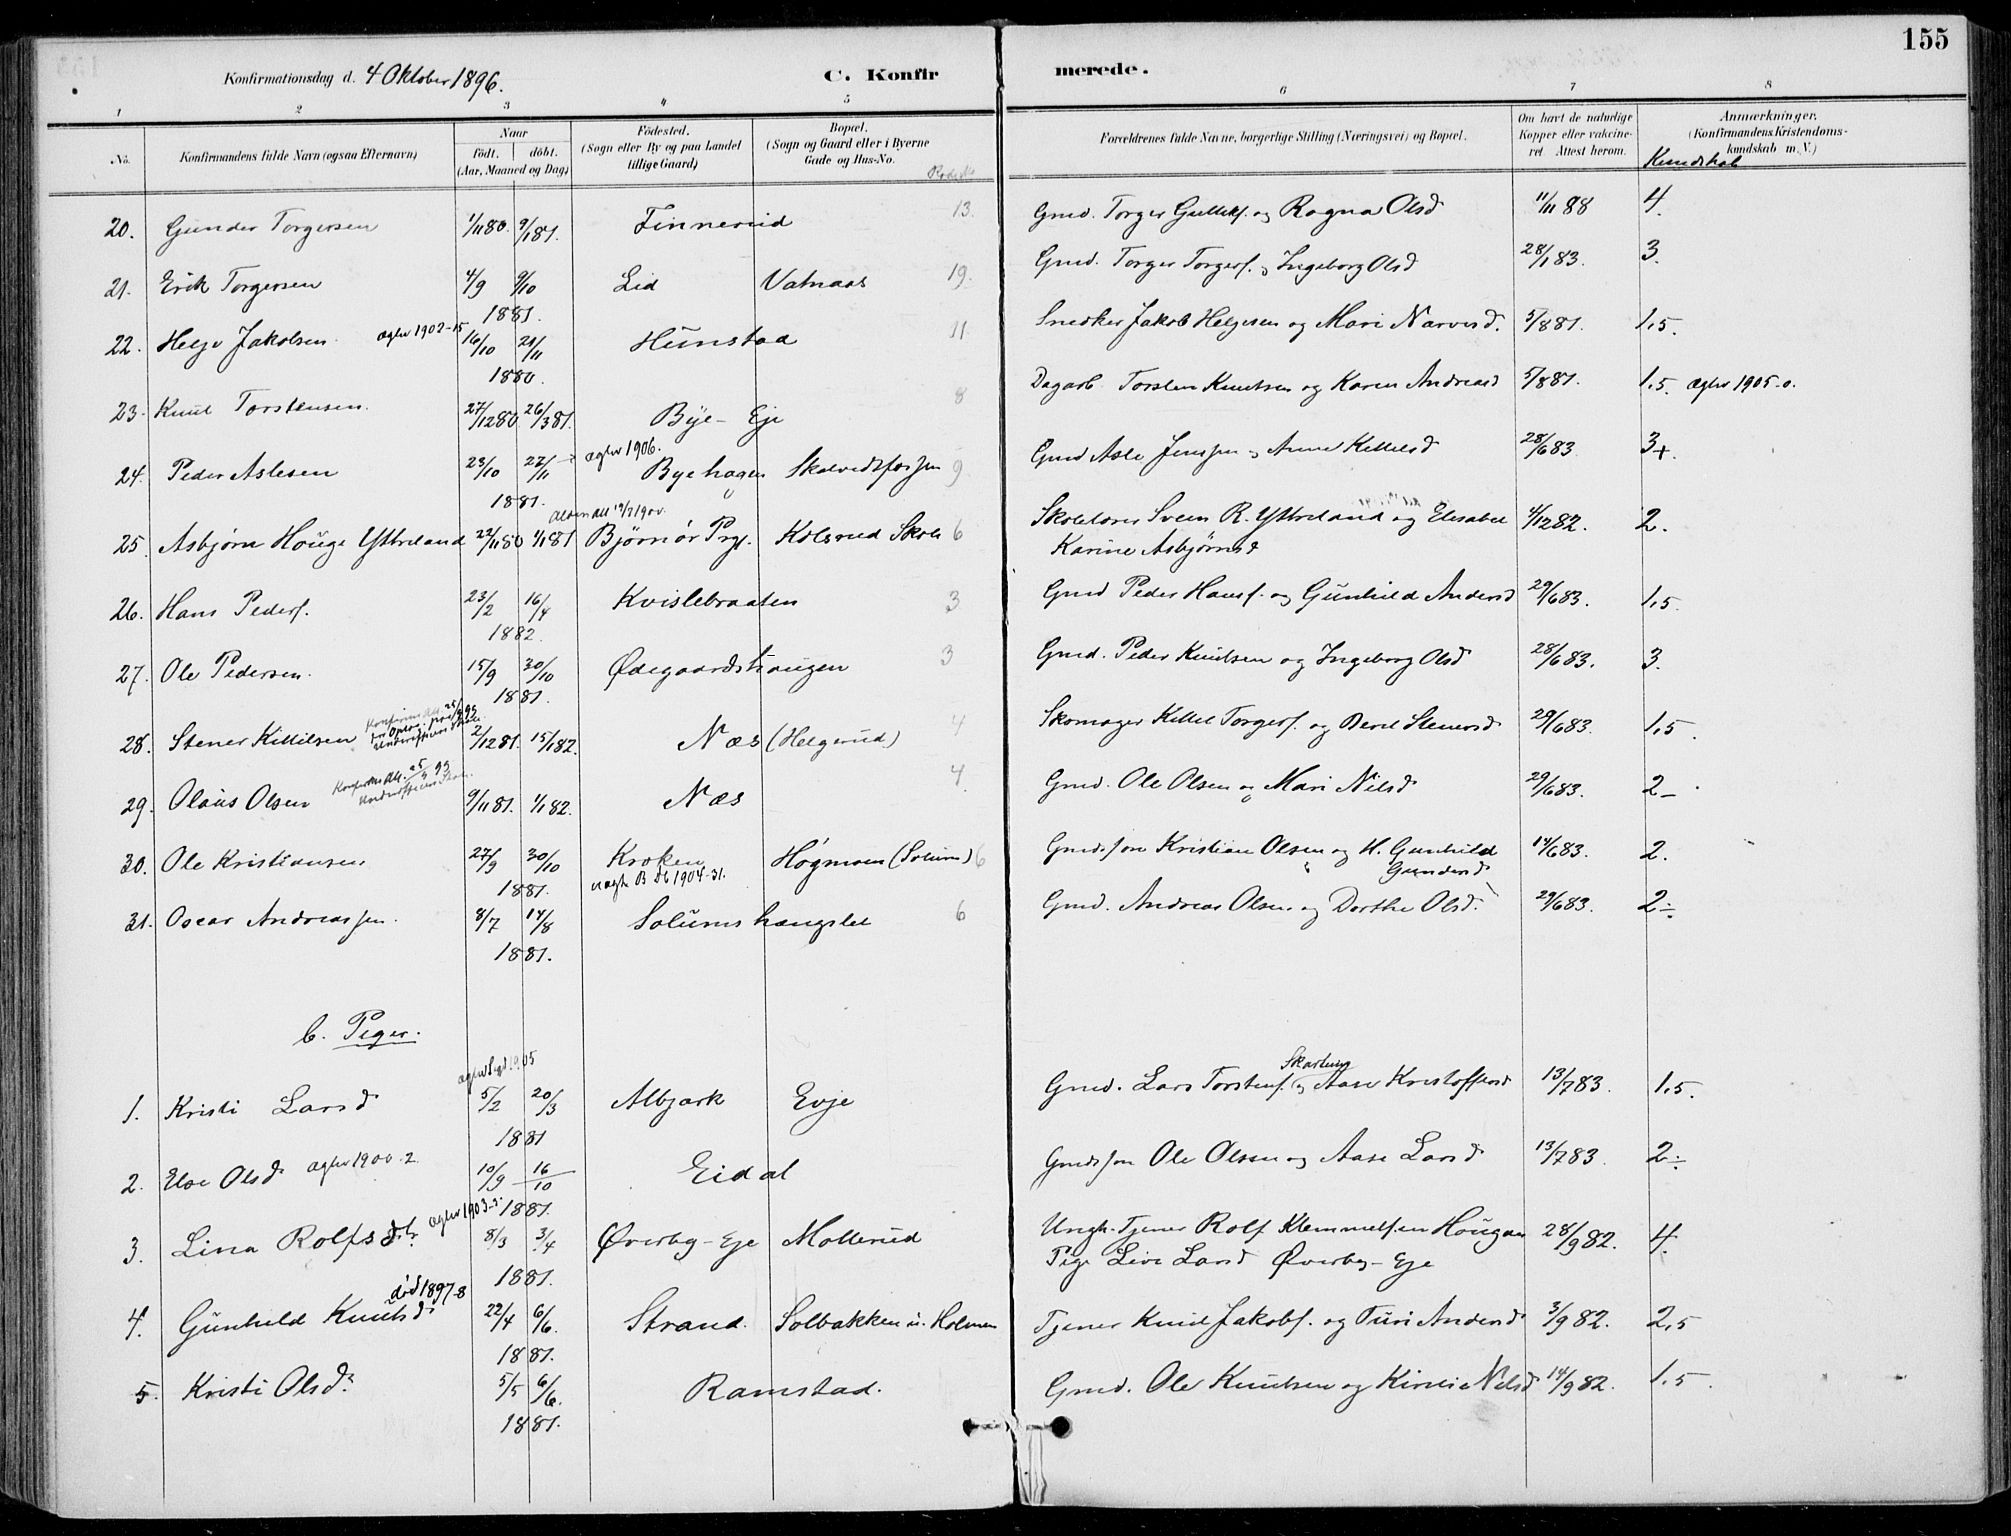 155
Konfirmationsdag d. 4 Oktober 1896.
C. Konfirmerede.
1 2 3 4 5 6 7 8
No. Konfirmandens fulde Navn (ogsaa Efternavn)
Naar født. døbt. (Aar, Maaned og Dag)
Fødested. (Sogn eller By og paa Landet tillige Gaard)
Bopæl. (Sogn og Gaard eller i Byerne Gade og Hus-No.
Forældrenes fulde Navne, borgerlige Stilling (Næringsvei) og Bopæl.
Om havt de naturlige Kopper eller vaccineret. Attest herom.
Anmærkninger. (Konfirmandens Kristendomskundskab m. V.)
Kundskab
20. Gunder Torgersen 1/11 80. 9/1 81. Finnerud 13. Gmd. Torger Gulliksf. og Ragna Olsd 11/11 88 4.
21. Erik Torgersen 4/9 9/10 1881. Lid Vatnaas 19. Gmd. Torger Torgersf. og Ingeborg Olsd 28/1 83. 3.
22. Helge Jakobsen agtev 1902-15 16/10 21/11 1880. Hunstad 11 Snedker Jakob Helgesen og Mari Narvesd. 5/8 81. 1,5.
23. Knut Torstensen. 27/12 80 26/3 81. Bye-Eje 8 Dagarb. Torsten Knutsen og Karen Andreasd 5/8 81. 1,5. agtev 1905-0.
24. Peder Aslesen 23/10 27/11 1881. agtev 1906. Byehagen 9 Gmd Asle Jenssen og Anne Kittelsd 28/6 83. 3+.
25. Asbjørn Houge Yttreland 22/11 80 1/1 81 Bjørnør Prgj. Kolsrud Skole 6 Skolelærer Svein R. Yttreland og Elisabet 4/12 82. 2.
Karine Asbjørnsd
26. Hans Pedersf. 23/2 16/4 1882. Kvislebraaten 3 Gmd Peder Hansf. og Gunhild Andersd 29/6 83. 1,5.
27. Ole Pedersen. 15/9 30/10 1881. Ødegaardshaugen 3 Gmd. Peder Knutsen og Ingeborg Olsd 28/6 83. 3.
28. Stener Kittilsen 2/12 81. 15/1 82. Næs (Helgerud) 4 Skomager Kittel Torgersf. og Berit Stenersd 29/6 83. 1,5.
29. Olaus Olsen 9/11 81. 1/1 82. Næs 4. Gmd. Ole Olsen og Mari Nilsd 29/6 83. 2-
30. Ole Kristiansen 27/9 30/10 1881. Kroken Høgmoen (Solum) 6 Gmdsson Kristian Olsen og H. Gunhild Gundersd 14/6 83. 2.
31. Oscar Andreassen. 8/7 14/8 1881. Solumshængslet 6 Gmd. Andreas Olsen og Dorthe Olsd. 29/6 83. 2÷
b. Piger.
1. Kristi Larsd 5/2 20/3 1881 Albjørk Evje Gmd. Lars Torstensf. Skartung og Aase Kristoffersd 13/7 83. 1,5.
2. Else Olsd agtev 1900.2. 10/9 16/10 1881. Eidal Gmdsson Ole Olsen og Aase Larsd 13/7 83. 2÷
3. Lina Rolfsdtr. agtev 1903-3. 8/3 3/4 1881. Øverby-Eje Mollerud Ungk. Tjener Rolf Klemmetsen Hougan 28/9 82. 4.
Pige Live Larsd Øverby-Eje
4. Gunhild Knutsd. død 1897-8 22/4 6/6. 1881. Strand. Solbakken u. Holmen Tjener Knut Jakobsf. og Turi Andersd 3/9 82. 2,5
5. Kristi Olsd. 5/5 6/6. 1881. Ramstad. Gmd. Ole Knutsen og Kirsti Nilsd 14/9 82. 1,5.